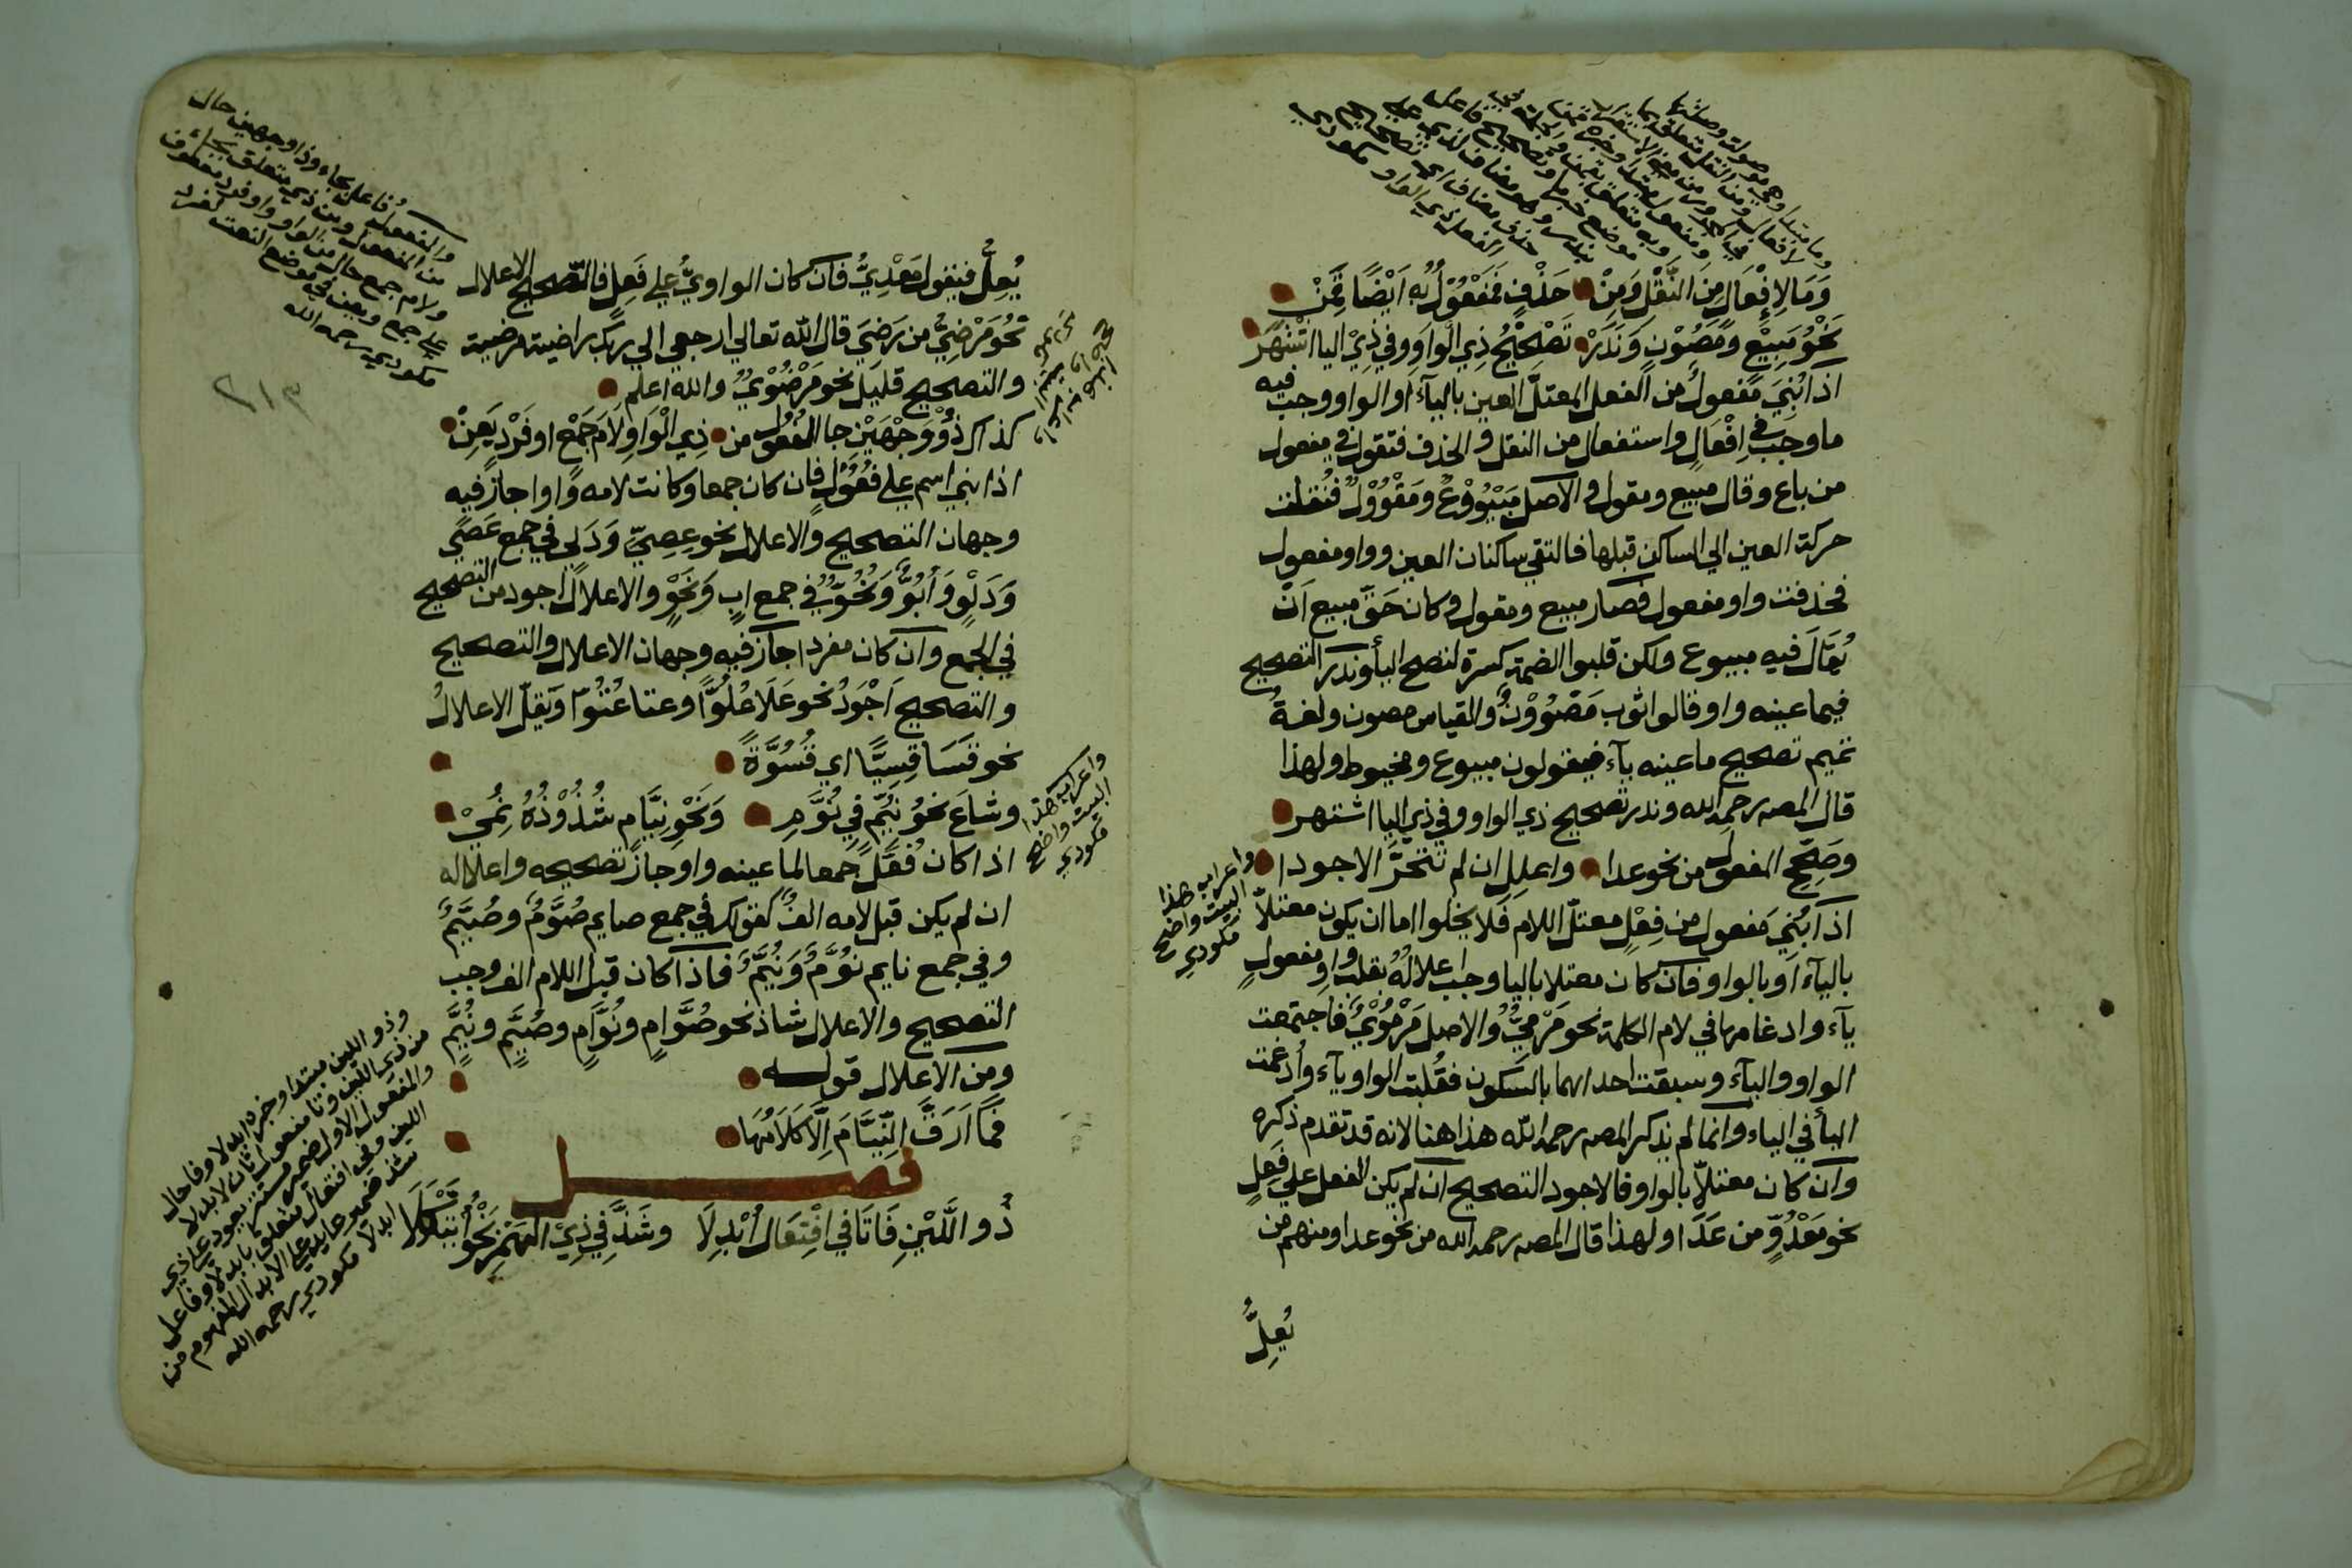 وَمَا لِإِفْعَالٍ مِنَ النَّقْلِ وَمِنْ حَذْفٍ فَمَفْعُوْلٌ بِهِ اَيْضًا قَمِنْ
نَحْوُ مَبِيْعٍ وَمَصُوْنٍ وَنَدَرْ تَصْحِيْحُ ذِي الْوَاوِ وَفِي ذِيْ اليا اشْتَهَرْ
اذا بُنِيَ مفعولٌ من الفعل المعتلّ العين بالياء او الواو وجب فيه
ما وجب في اِفْعَالٍ واستفعال من النقل والحذف فتقول في مفعول
من باع وقال مبيع ومقول والاصل مَبْيُوْعٌ ومَقْوُوْلٌ فنُقلت
حركة العين الي الساكن قبلها فالتقي ساكنان العين وواو مفعول
فحذفت واو مفعول فصار مبيع ومقول وكان حَقّ مبيع اَنْ
يُقَالَ فيه مبوع ولكن قلبوا الضمة كسرة لتصح اليأ وندر التصحيح
فيما عينه واو قالوا ثوب مَصْوُوْنٌ والقياس مصون ولغةُ
تميم تصحيح ما عينه يآء فيقولون مبيوع ومخيوط ولهذا
قال المصـ رحمه الله وندر تصحيح ذي الواو وفي ذي اليا اشتهر
وصَحِّحِ المفعولَ من نحو عدا واعلِلِ ان لم تتحرَّ الاجودا
اذا بُنِيَ مفعول من فِعْلٍ معتلّ اللام فلا يخلوا اما ان يكون معتلاً
بالياء او بالواو فان كان معتلا باليا وجب اعلالهُ بقلب واو مفعولٍ
يآء وادغامها في لام الكلمة نحو مَرْمِيٌّ والاصل مَرْمُوْيٌ فاجتمعت
الواو والياء وسبقت احداهما بالسكون فقُلبت الواو يآء وأدغمت
اليأ في الياء وانما لم يذكر المصـ رحمه الله هذا هنا لانه قد تقدم ذكره
وان كان معتلاً بالواو فالاجود التصحيح ان لم يكن الفعل علي فَعِلٍ
نحو مَعْدُوٍّ من عَدَا ولهذا قال المصـ رحمه الله من نحو عدا ومنهم من
يُعِلُّ
واعراب هذا
البيت واضح
مكودي
يُعِلُّ فيقول مَعْدِيٌّ فان كان الواويُّ علي فَعِلٍ فالتصحيح الاعلال
نحو مَرْضِيٌّ من رَضِيَ قال الله تعالي ارجعي الي ربك راضية مرضية
والتصحيح قليل نحو مَرْضُوْيٌّ والله اعلم
كذاك ذُوْ وَجْهَيْنِ جا الفُعُول من ذِي الْوَاوِ لَامَ جَمْعٍ او فَرْدٍ يَعِنْ
اذا بني اسم علي فُعُوْلٍ فان كان جمعا وكانت لامه واوا جاز فيه
وجهان التصحيح والاعلال نحو عِصِيّ وَدَلِي في جمع عَصَي
وَدَلْوٍ وَاُبُوّ وَنُحُوّ في جمع ابٍ وَنَحْوٍ والاعلال اجود من التصحيح
في الجمع وان كان مفردا جاز فيه وجهان الاعلال والتصحيح
والتصحيح اَجْوَدُ نحو عَلَا عُلُوًّا وعتا عُتُوّا وَيَقِلّ الاعلالُ
نحو قَسَا قِسِيًّا اي قُسُوَّةً
وشاعَ نحوُ نُيَّمٍ فِي نُوَّمِ وَنَحْوُ نِيَّامٍ شُذُوْذُهُ نُمِيْ
اذا كان فُعَّلٌ جمعا لما عينه واو جاز تصحيحه واعلاله
ان لم يكن قبل لامه الفٌ كقولك في جمع صايم صُوَّمٌ وصُيَّمٌ
وفي جمع نايم نُوَّمٌ وَنُيَّمٌ فاذا كان قبل اللام الف وجب
التصحيح والاعلال شاذ نحو صُوَّامٍ ونُوَّامٍ وصُيَّمٍ ونُيَّمٍ
ومن الاعلال قولـــه
فَمَا اَرَقَّ النِّيَّامَ اِلَّا كَلَامُهَا
فصــــل
ذُو اللَّيْنِ فَا تَا فِي افْتِعَالٍ اُبْدِلَا وشَذَّ فِي ذِيْ الهَمْزِ نَحْوُ ائْتَكَلَا
والفعول فاعل بجاء وذا وجهين حال
من الفعول ومن ذي متعلق بجاء
ولام جمع حال من الواو او فرد معطوف
علي جمع ويعن في موضع النعت لفرد
مكودي رحمه الله
٢١٣
واعراب هذا
البيت واضح
مكودي
وذو اللين مبتدا وخبره ابدلا وفا حال
من ذي اللين وتا مفعول ثان لابدلا
والمفعول الاول ضمير مستتر يعود علي ذي
اللين وفي افتعال متعلق بابدلا وفاعل
شذ ضمير عايد علي الابدال المفهوم من
ابدلا مكودي رحمه الله